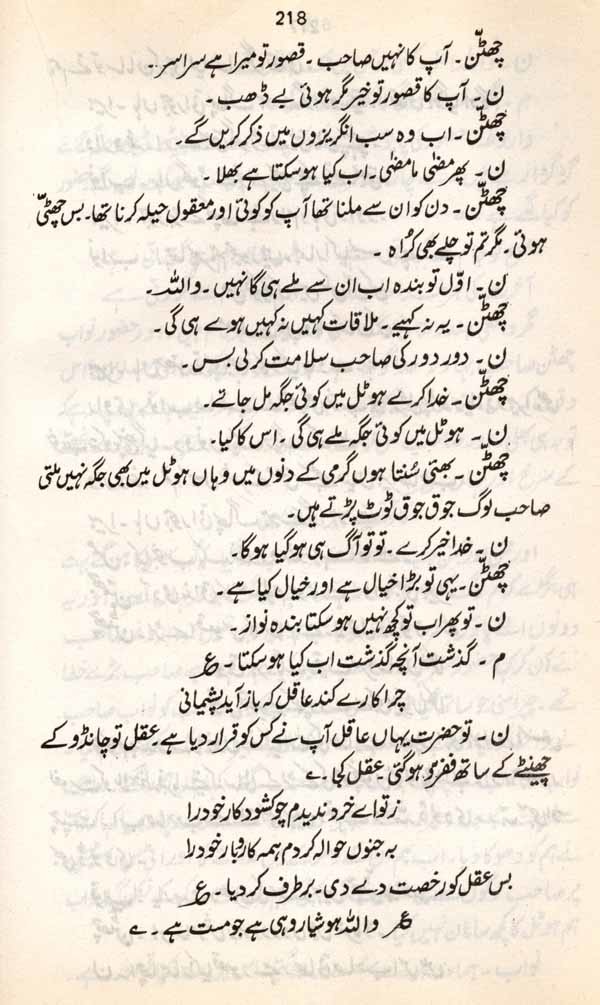 218
چھٹن۔ آپ کا نہیں صاحب۔ قصور تو میرا ہے سراسر۔
ن۔ آپ کا قصور تو خیر مگر ہوئی بے ڈھب۔
چھٹن۔ اب وہ سب انگریزوں میں ذکر کریں گے۔
ن۔ پھر مضیٰ مامضیٰ۔ اب کیا ہو سکتا ہے بھلا۔
چھٹن۔ دن کو ان سے ملنا تھا آپ کو کوئی اور معقول حیلہ کرنا تھا۔ بس چھٹی
ہوتی۔ مگر تم تو چلے بھی کراہ۔
ن۔ اوّل تو بندہ اب ان سے ملے ہی گا نہیں۔ واللہ۔
چھٹن۔ یہ نہ کہیے۔ ملاقات کہیں نہ کہیں ہوے ہی گی۔
ن۔ دور دور کی صاحب سلامت کر لی بس۔
چھٹن۔ خدا کرے ہوٹل میں کوئی جگہ مل جاتے۔
ن۔ ہوٹل میں کوئی جگہ ملے ہی گی۔ اس کا کیا۔
چھٹن۔ بھئی سُنتا ہوں گرمی کے دنوں میں وہاں ہوٹل میں بھی جگہ نہیں ملتی
صاحب لوگ جوق جوق ٹوٹ پڑتے ہیں۔
ن۔ خدا خیر کرے۔ تو تو آگ ہی ہو گیا ہوگا۔
چھٹن۔ یہی تو بڑا خیال ہے اور خیال کیا ہے۔
ن۔ تو پھر اب تو کچھ نہیں ہو سکتا بندہ نواز۔
م۔ گذشت آنچہ گذشت اب کیا ہو سکتا۔ ع
چرا کارے کند عاقل کہ باز آید پشیمانی
ن۔ تو حضرت یہاں عاقل آپ نے کس کو قرار دیا ہے۔ عقل تو چانڈو کے
چھینٹے کے ساتھ فقرو ہو گئی۔ عقل کجا۔ ؎
زتو اے خرد ندیدم چو کشود کار خود را
بہ جنوں حوالہ کردم ہمہ کاروبار خود را
بس عقل کو رخصت دے دی۔ برطرف کر دیا۔ ع
ع واللہ ہوشیار وہی ہے جو مست ہے۔ ؎